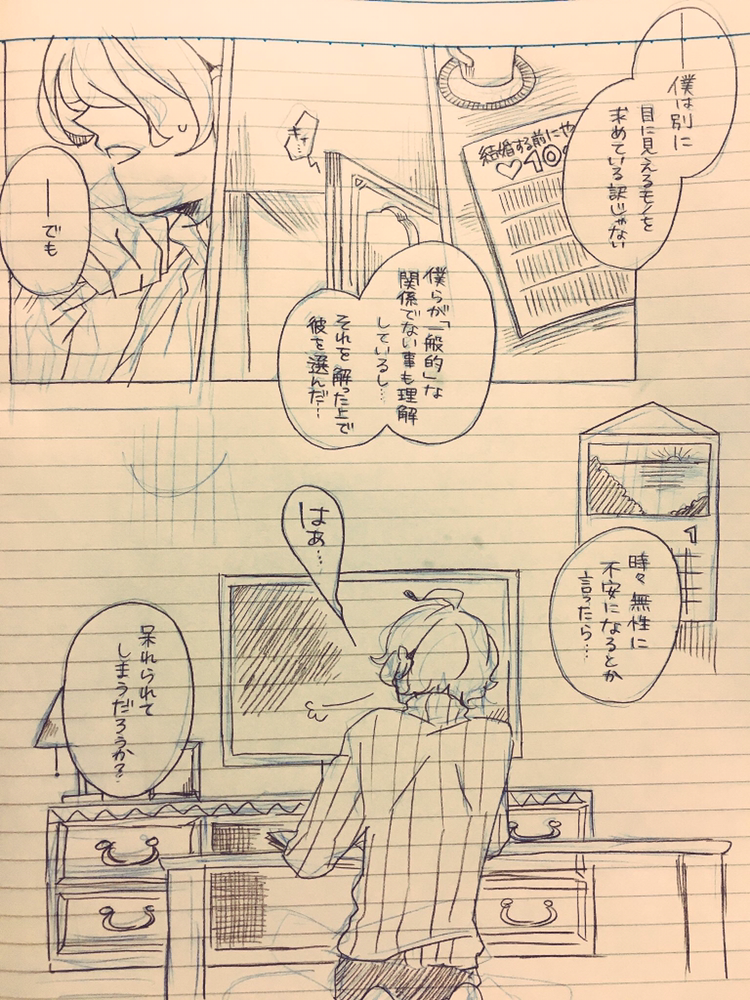 僕は別に
目に見えるモノを
求めている訳じゃない
結婚する前にや
♡10
僕らが「一般的」な
関係でない事も理解
しているし…
それを解った上で
彼を選んだ…
きゅ…
―でも
時々無性に
不安になるとか
言ったら…
はぁ…
呆れられて
しまうだろうか?